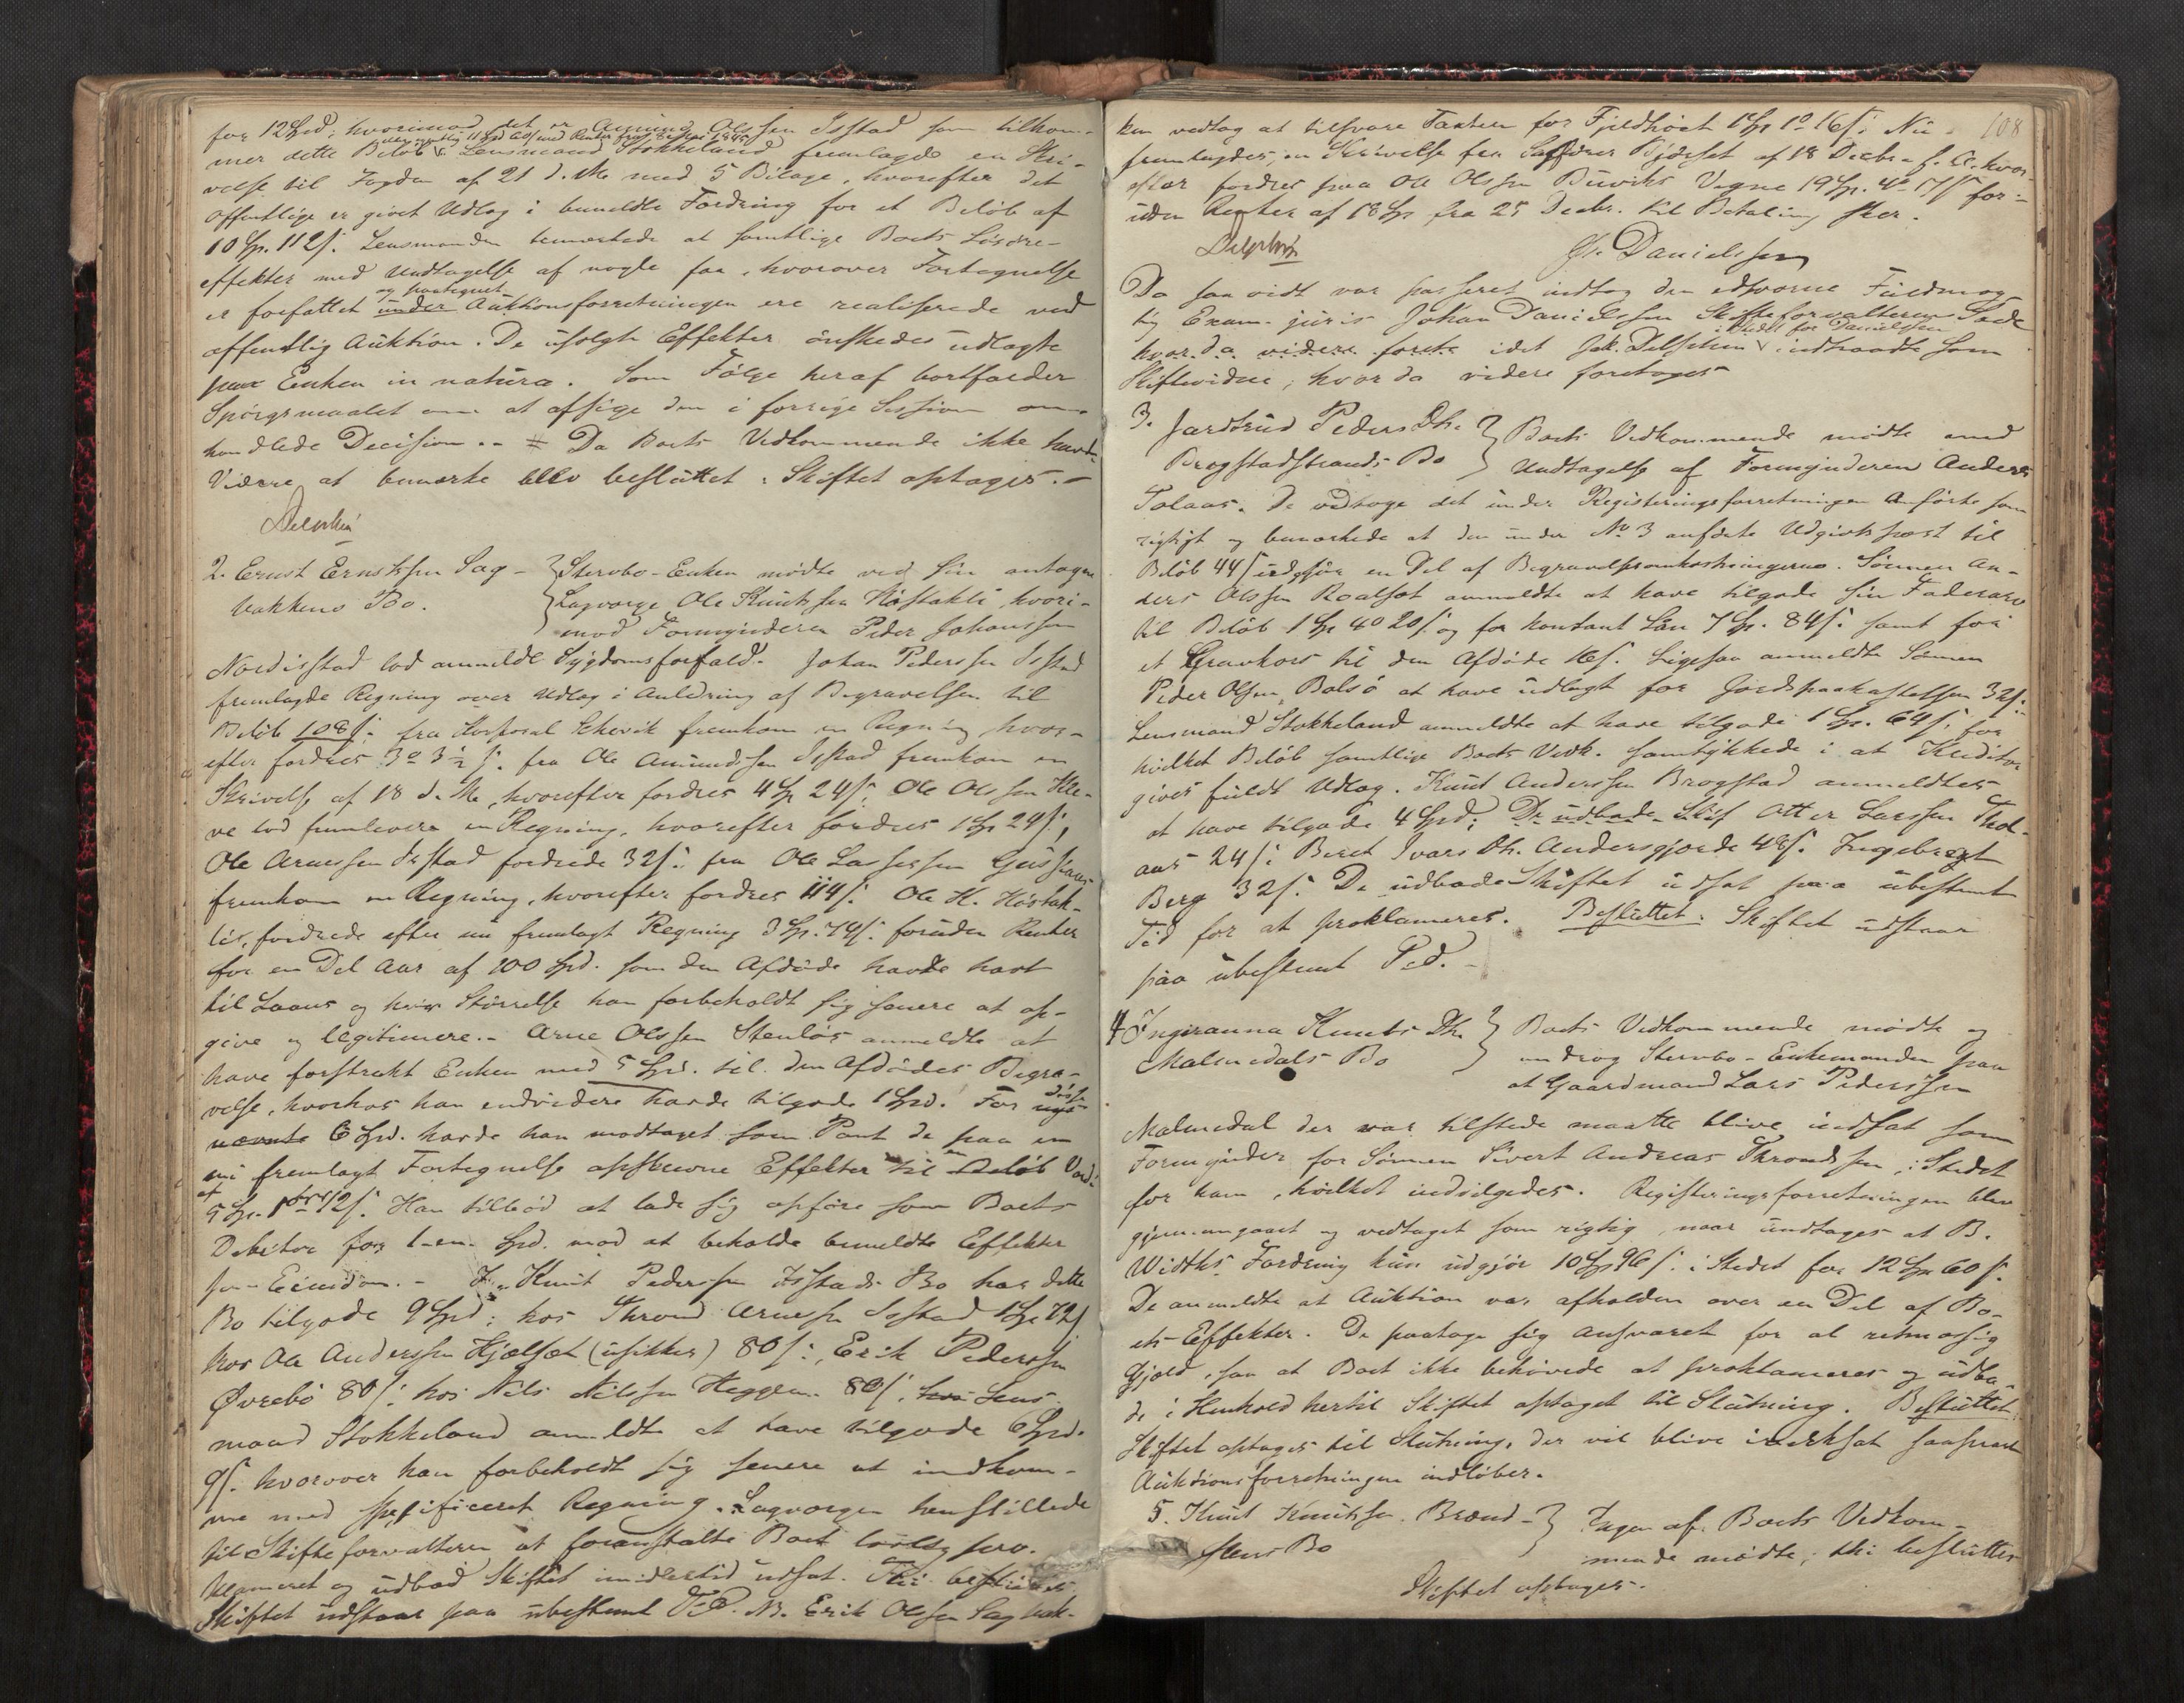 for 12 Spd; hvorimod det er Amund Olsen Isstad som tilkom-
mer dette Beløb. Lensmand Stokkeland fremlagde en Skri-
velse til Fogden af 21 d. M. med 5 Bilage, hvorefter det
offentlige er givet Udlæg i bemeldte Fordring for et Beløb af
10 Sp. 112 ſ. Lensmanden bemærkede at samtlige Boets Løsøre-
effekter med Undtagelse af nogle faa, hvorover Fortegnelse
og paategnet
er forfattet under Auktionsforretningen ere realiserede ved
offentlig Auktion. De usolgte Effekter ønskedes udlagte
Enken in natura. Som Følge heraf bortfalder
Spørgsmaalet om at afsige den i forrige Session om-
handlede Decision. - # Da Boets Vedkommende ikke havde
Videre at bemærke blev besluttet: Skiftet optages. -
2. Ernst Ernstsen Sag- } Stervbo-Enken mødte ved sin antagne
vakkens Bo. } Lagværge Ole Knutsen Høstakli, hvori-
mod Formynderen Peder Johansen
Nordisstad lod anmelde Sygdomsforfald. Johan Pedersen Isstad
fremlagde Regning over Udlæg i Anledning af Begravelsen til
Beløb 108 ſ. fra Korporal Ekervik fremkom en Regning hvor-
efter fordres 3 o 3½ ſ. fra Ole Amundsen Isstad fremkom en
Skrivelse af 18 d. M., hvorefter fordres 4 Sp 24 ſ. Ole Olsen Kle-
ve lod fremlevere en Regning, hvorefter fordres 1 Sp 24 ſ.,
Ole Arnesen Isstad fordrede 32 ſ. fra Ole Lassesen
fremkom en Regning, hvorefter fordres 114 ſ. Ole K. Høstak-
li, fordrede efter nu fremlagt Regning 3 Sp. 74 ſ. foruden Renter
for en Del Aar af 100 Spd. som den Afdøde havde havt
til Laans og hvis Størrelse han forbeholdt sig senere at op-
give og legitimere. - Arne Olsen Stenløs anmeldte at
have forstrakt Enken med 5 Spd. til den Afdødes Begra-
velse, hvorhos han endvidere havde tilgode 1 Spd. For disse
nævnte 6 Spd. havde han modtaget som Pant de paa en
nu fremlagt Fortegnelse opskrevne Effekter til en Beløb Værdi
af
5 Sp. 1 ort 12 ſ. Han tilbød at lade sig opføre som Boets
Debitor for 1-en- Spd. mod at beholde bemeldte Effekter
som Eiendom. - I Knut Pedersen Isstads Bo har dette
Bo tilgode 9 Spd; hos Thrond Arnesen Isstad 1 Sp 72 ſ
hos Ole Andersen Hjelset (usikker) 80 ſ., Erik Pedersen
Øvrebø 80 ſ. hos Nils Nilsen Heggem 80 ſ. hos Lens-
mand Stokkeland anmeldte at have tilgode 6 Spd.
9 ſ. hvorover han forbeholdt sig senere at indkom-
me med specificeret Regning. Lagværgen henstillede
til Skifteforvalteren at foranstalte Boet lovlig pro-
klameret og udbad Skiftet imidlertid udsat. Thi besluttet:
Skiftet udstaar paa ubestemt Tid. NB. Erik Olsen Sagvak-
ken vedtog at tilsvare Taxten for Fjeldhøet 1 Sp 1 o 16 ſ. Nu 108
fremlagdes en Skrivelse fra Bjørset af 18 Decbr f. A. hvor-
efter fordres paa Ole Olsen Buviks Vegne 19 Sp. 4 o 17 ſ for-
uden Renter af 18 Sp fra 25 Decbr. til Betaling sker.
Joh. Danielsen
Da saavidt var passeret indtog den edsvorne Fuldmæg-
tig Exam. juris Johan Danielsen Skifteforvalterens Sæde
i Stedet for Danielsen
hvor da videre foretog idet Joh. Delphin indtraadte som
Skiftevidne; hvor da videre foretoges
3. Jardtrud Peders Dtr. } Boets Vedkommende mødte med
Brogstadstrands Bo } Undtagelse af Formynderen Anders
Tolaas. De vedtoge det under Registreringsforretningen Anførte som
rigtigt og bemærkede at den under No 3 anførte Udgivtspost til
Beløb 44 ſ udgjør en Del af Begravelsesomkostningerne. Sønnen An-
ders Olsen Roalset anmeldte at have tilgode sin Fædrearv
til Beløb 1 Sp 4 o 20 ſ. og for kontant Lån 7 Sp. 84 ſ. samt for
et Gravkors til den Afdøde 16 ſ. Ligesaa anmeldte Sønnen
Peder Olsen Bolsø at have udlagt for Jordspaakastelsen 32 ſ.
Lensmand Stokkeland anmeldte at have tilgode 1 Sp. 64 ſ. for
hvilket Beløb samtlige Boets Vedk. samtykkede i at Kreditor
gives fuldt Udlæg. Knut Andersen Brogstad anmeldtes
at have tilgode 4 Spd; De udbade Skif Otter Larsen Thol-
aas 24 ſ. Beret Ivars Dtr. Andersgjerde 48 ſ. Ingebregt
Berg 32 ſ. De udbade Skiftet udsat paa ubestemt
Tid for at proklameres. Besluttet: Skiftet udstaar
paa ubestemt Tid. -
4 Ingeranna Knuts Dtr. } Boets Vedkommende mødte og
Malmedals Bo } androg Stervbo-Enkemanden paa
at Gaardmand Lars Pedersen
Malmedal der var tilstede maatte blive indsat som
Formynder for Sønnen Sivert Andreas Throndsen, i Stedet
for ham, hvilket indvilgedes. Registreringsforretningen blev
gjennemgaaet og vedtaget som rigtig, naar undtages at B.
Widths Fordring kun udgjør 10 Sp 96 ſ. i Stedet for 12 Sp 60 ſ.
De anmeldte at Auktion var afholden over en Del af Bo-
ets Effekter. De paatoge sig Ansvaret for al retmæssig
Gjæld, saa at Boet ikke behøvede at proklameres og udba-
de i Henhold hertil Skiftet optaget til Slutning. Besluttet:
Skiftet optages til Slutning, der vil blive iverksat saasnart
Auktionsforretningen indløber.
5. Knut Knutsen Brænd- } Ingen af Boets Vedkom-
stens Bo } mende mødte; thi besluttes
Skiftet optages.